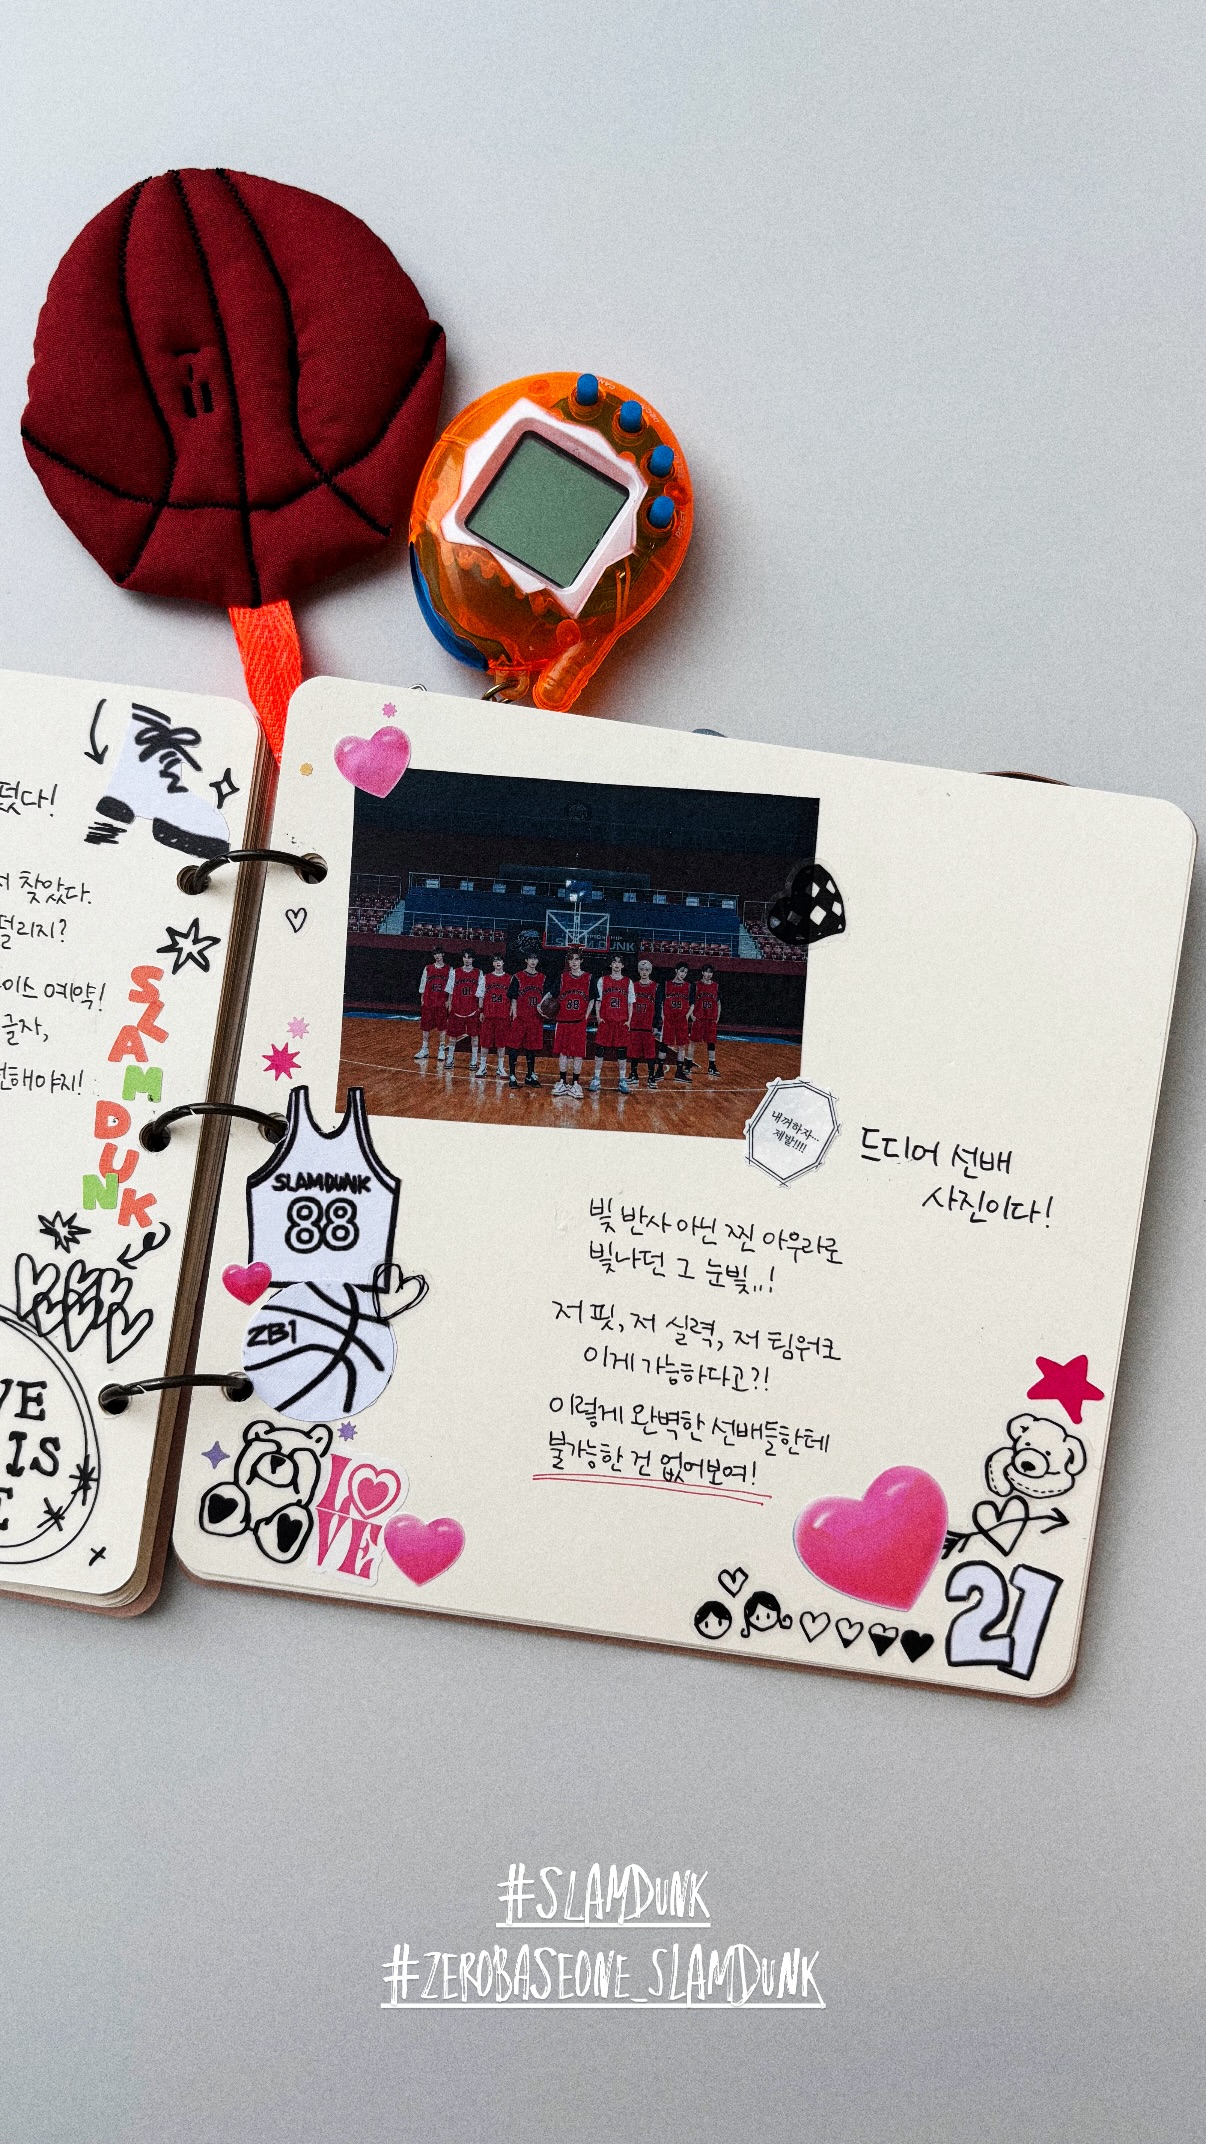 졌다!
찾았다.
떨리지?
예약!
글자,
전해야지!
SLAM
DUNK
VE
IS
E
SLAM DUNK
SLAMDUNK
88
ZB1
LOVE
내꺼하자...
제발!!!!
드디어 선배
사진이다!
빛 반사 아닌 찐 아우라로
빛나던 그 눈빛,,!
저 핏, 저 실력, 저 팀워크
이게 가능하다고?!
이렇게 완벽한 선배들한테
불가능한 건 없어보여!
21
#SLAMDUNK
#ZEROBASEONE_SLAMDUNK